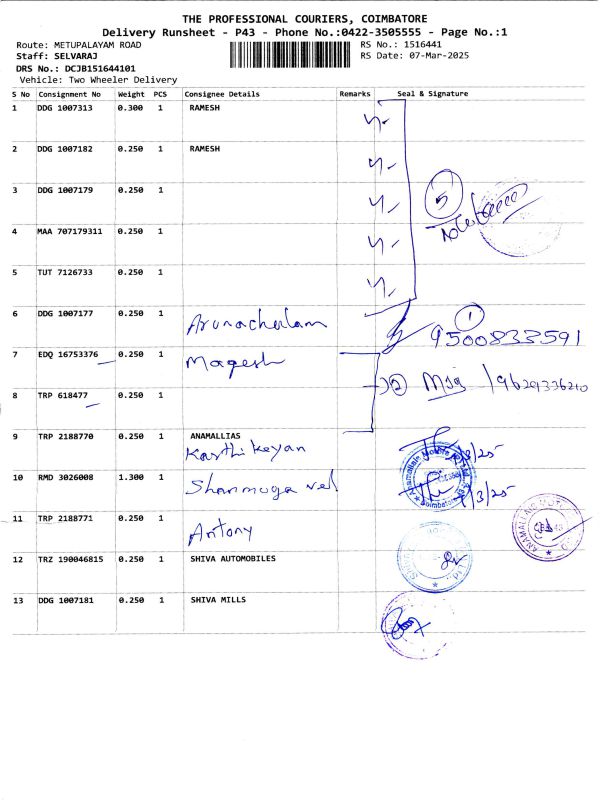 THE PROFESSIONAL COURIERS, COIMBATORE
Delivery Runsheet - P43 - Phone No.:0422-3505555 - Page No.:1
Route: METUPALAYAM ROAD RS No.: 1516441
Staff: SELVARAJ RS Date: 07-Mar-2025
DRS No.: DCJB151644101
Vehicle: Two Wheeler Delivery
S No Consignment No Weight PCS Consignee Details Remarks Seal & Signature
1 DDG 1007313 0.300 1 RAMESH
2 DDG 1007182 0.250 1 RAMESH
3 DDG 1007179 0.250 1
5
4 MAA 707179311 0.250 1
5 TUT 7126733 0.250 1
6 DDG 1007177 0.250 1 Arunachalam 1
9500833591
7 EDQ 16753376 0.250 1 Magesh
2 9629336210
8 TRP 618477 0.250 1
9 TRP 2188770 0.250 1 ANAMALLIAS
Karthikeyan
10 RMD 3026008 1.300 1 Shanmuga vel /3/25
11 TRP 2188771 0.250 1 Antony
12 TRZ 190046815 0.250 1 SHIVA AUTOMOBILES
13 DDG 1007181 0.250 1 SHIVA MILLS